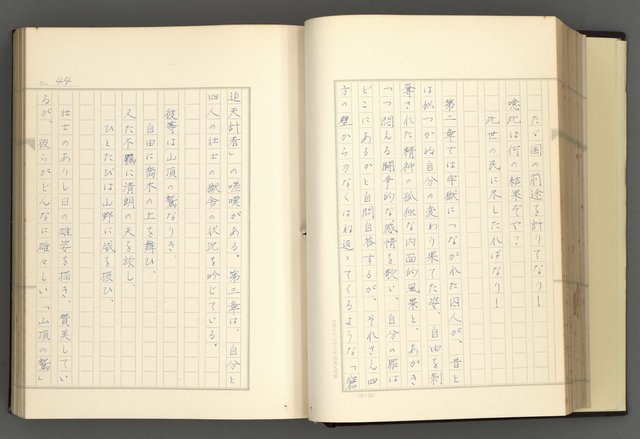 たゞ国の前途を計りてなり！
噫此は何の結果ぞや？
此世の民に尽したればなり！
第二章では牢獄につながれた囚人が、昔と
は似つかぬ自分の変わり果てた姿、自由を剥
奪された精神の孤独な内面的風景と、あがき
つつ悶える闘争的な感情を歌い、自分の罪は
どこにあるかと自問自答するが、それさえ四
方の壁から力なくはね返ってくるような「窘
No. 44
迫天計者」の嗟嘆がある。第三章は、自分と
四人の壮士の獄舎の状況を吟じている。
彼等は山頂の鷲なりき、
自由に喬木の上を舞ひ、
又た不羈に清朗の天を旅し、
ひとたびは山野に威を振ひ、
壮士のありし日の雄姿を描き、賛美してい
るが、彼らがどんなに雄々しい「山頂の鷲」
(20×20)